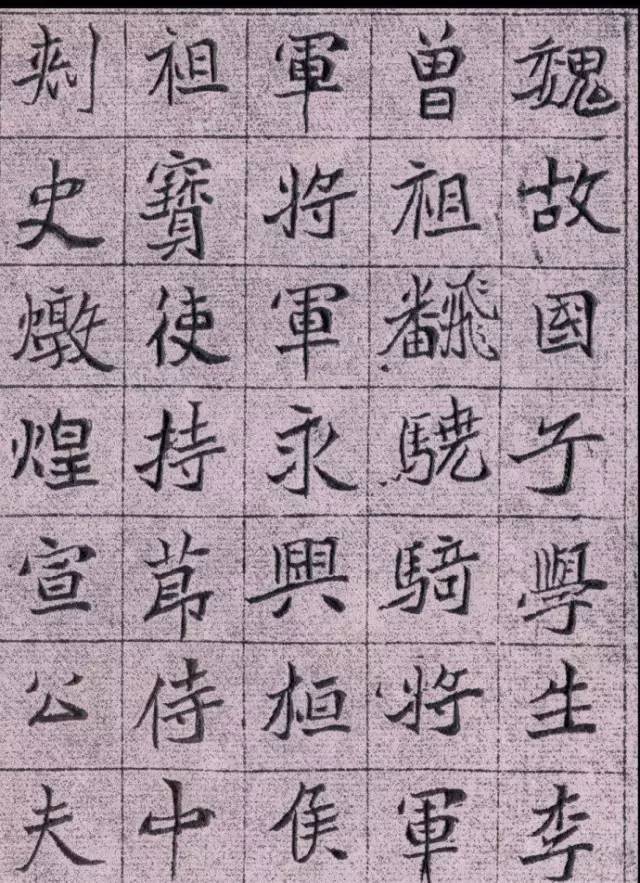 魏故國子學生李
曾祖飜驍騎將軍
軍將軍永興桓侯
祖寶使持莭侍中
刾史燉煌宣公夫